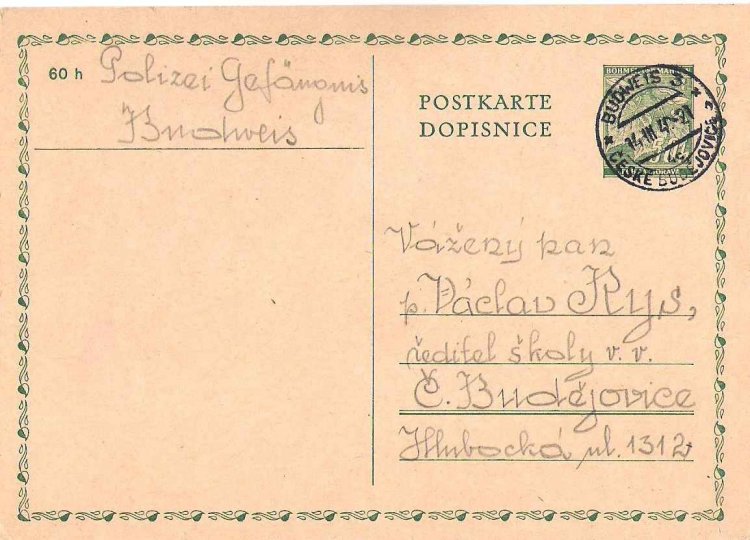 60 h
Polizei Gefängnis
Budweis
POSTKARTE
DOPISNICE
BUDWEIS 3
14.III.4
ČESKÉ BUDĚJOVICE 3
Vážený pan
p. Václav Rys,
ředitel školy v. v.
Č. Budějovice
Hlubocká ul. 1312